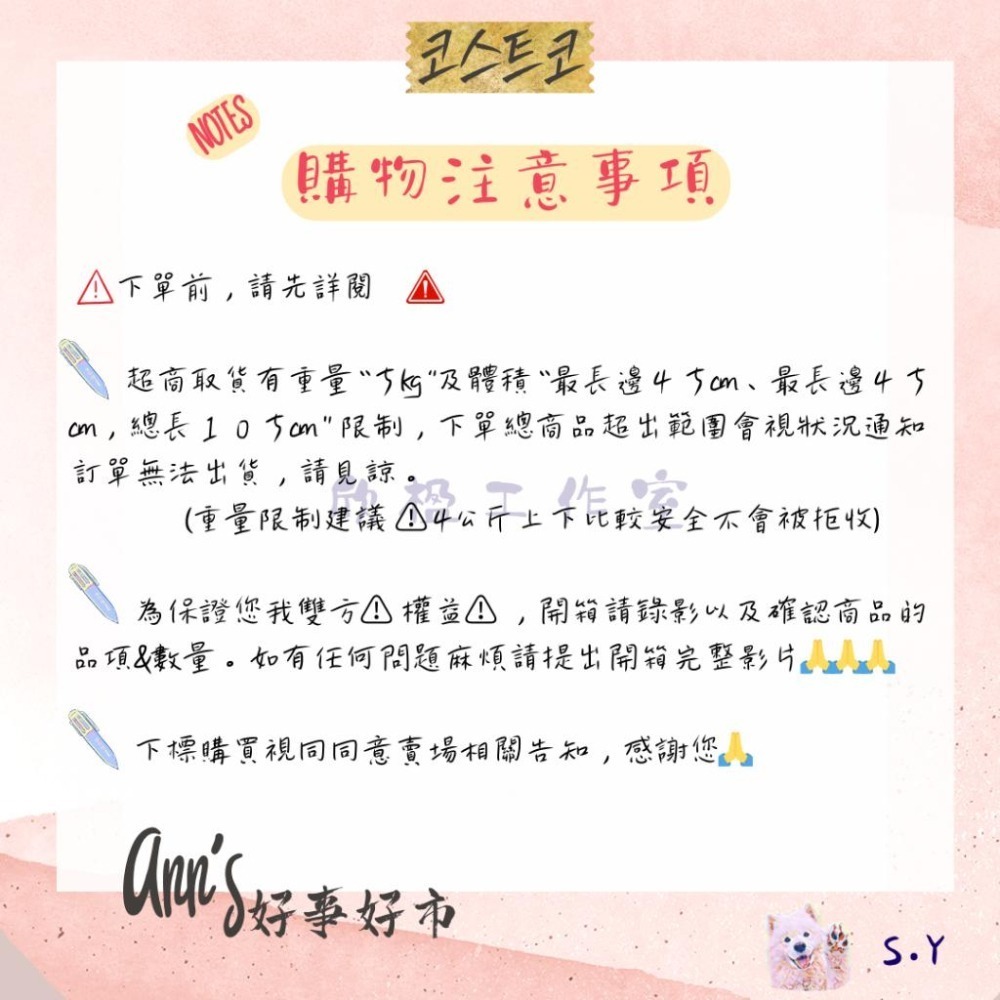 코스트코
NOTES
購物注意事項
⚠下單前，請先詳閱 ⚠
超商取貨有重量“5kg"及體積“最長邊45cm、最長邊45
cm，總長105cm"限制，下單總商品超出範圍會視狀況通知
訂單無法出貨，請見諒。
(重量限制建議⚠4公斤上下比較安全不會被拒收)
為保證您我雙方⚠權益⚠，開箱請錄影以及確認商品的
品項&數量。如有任何問題麻煩請提出開箱完整影片🙏🙏🙏
下標購買視同同意賣場相關告知，感謝您🙏
Ann's好事好市
S.Y